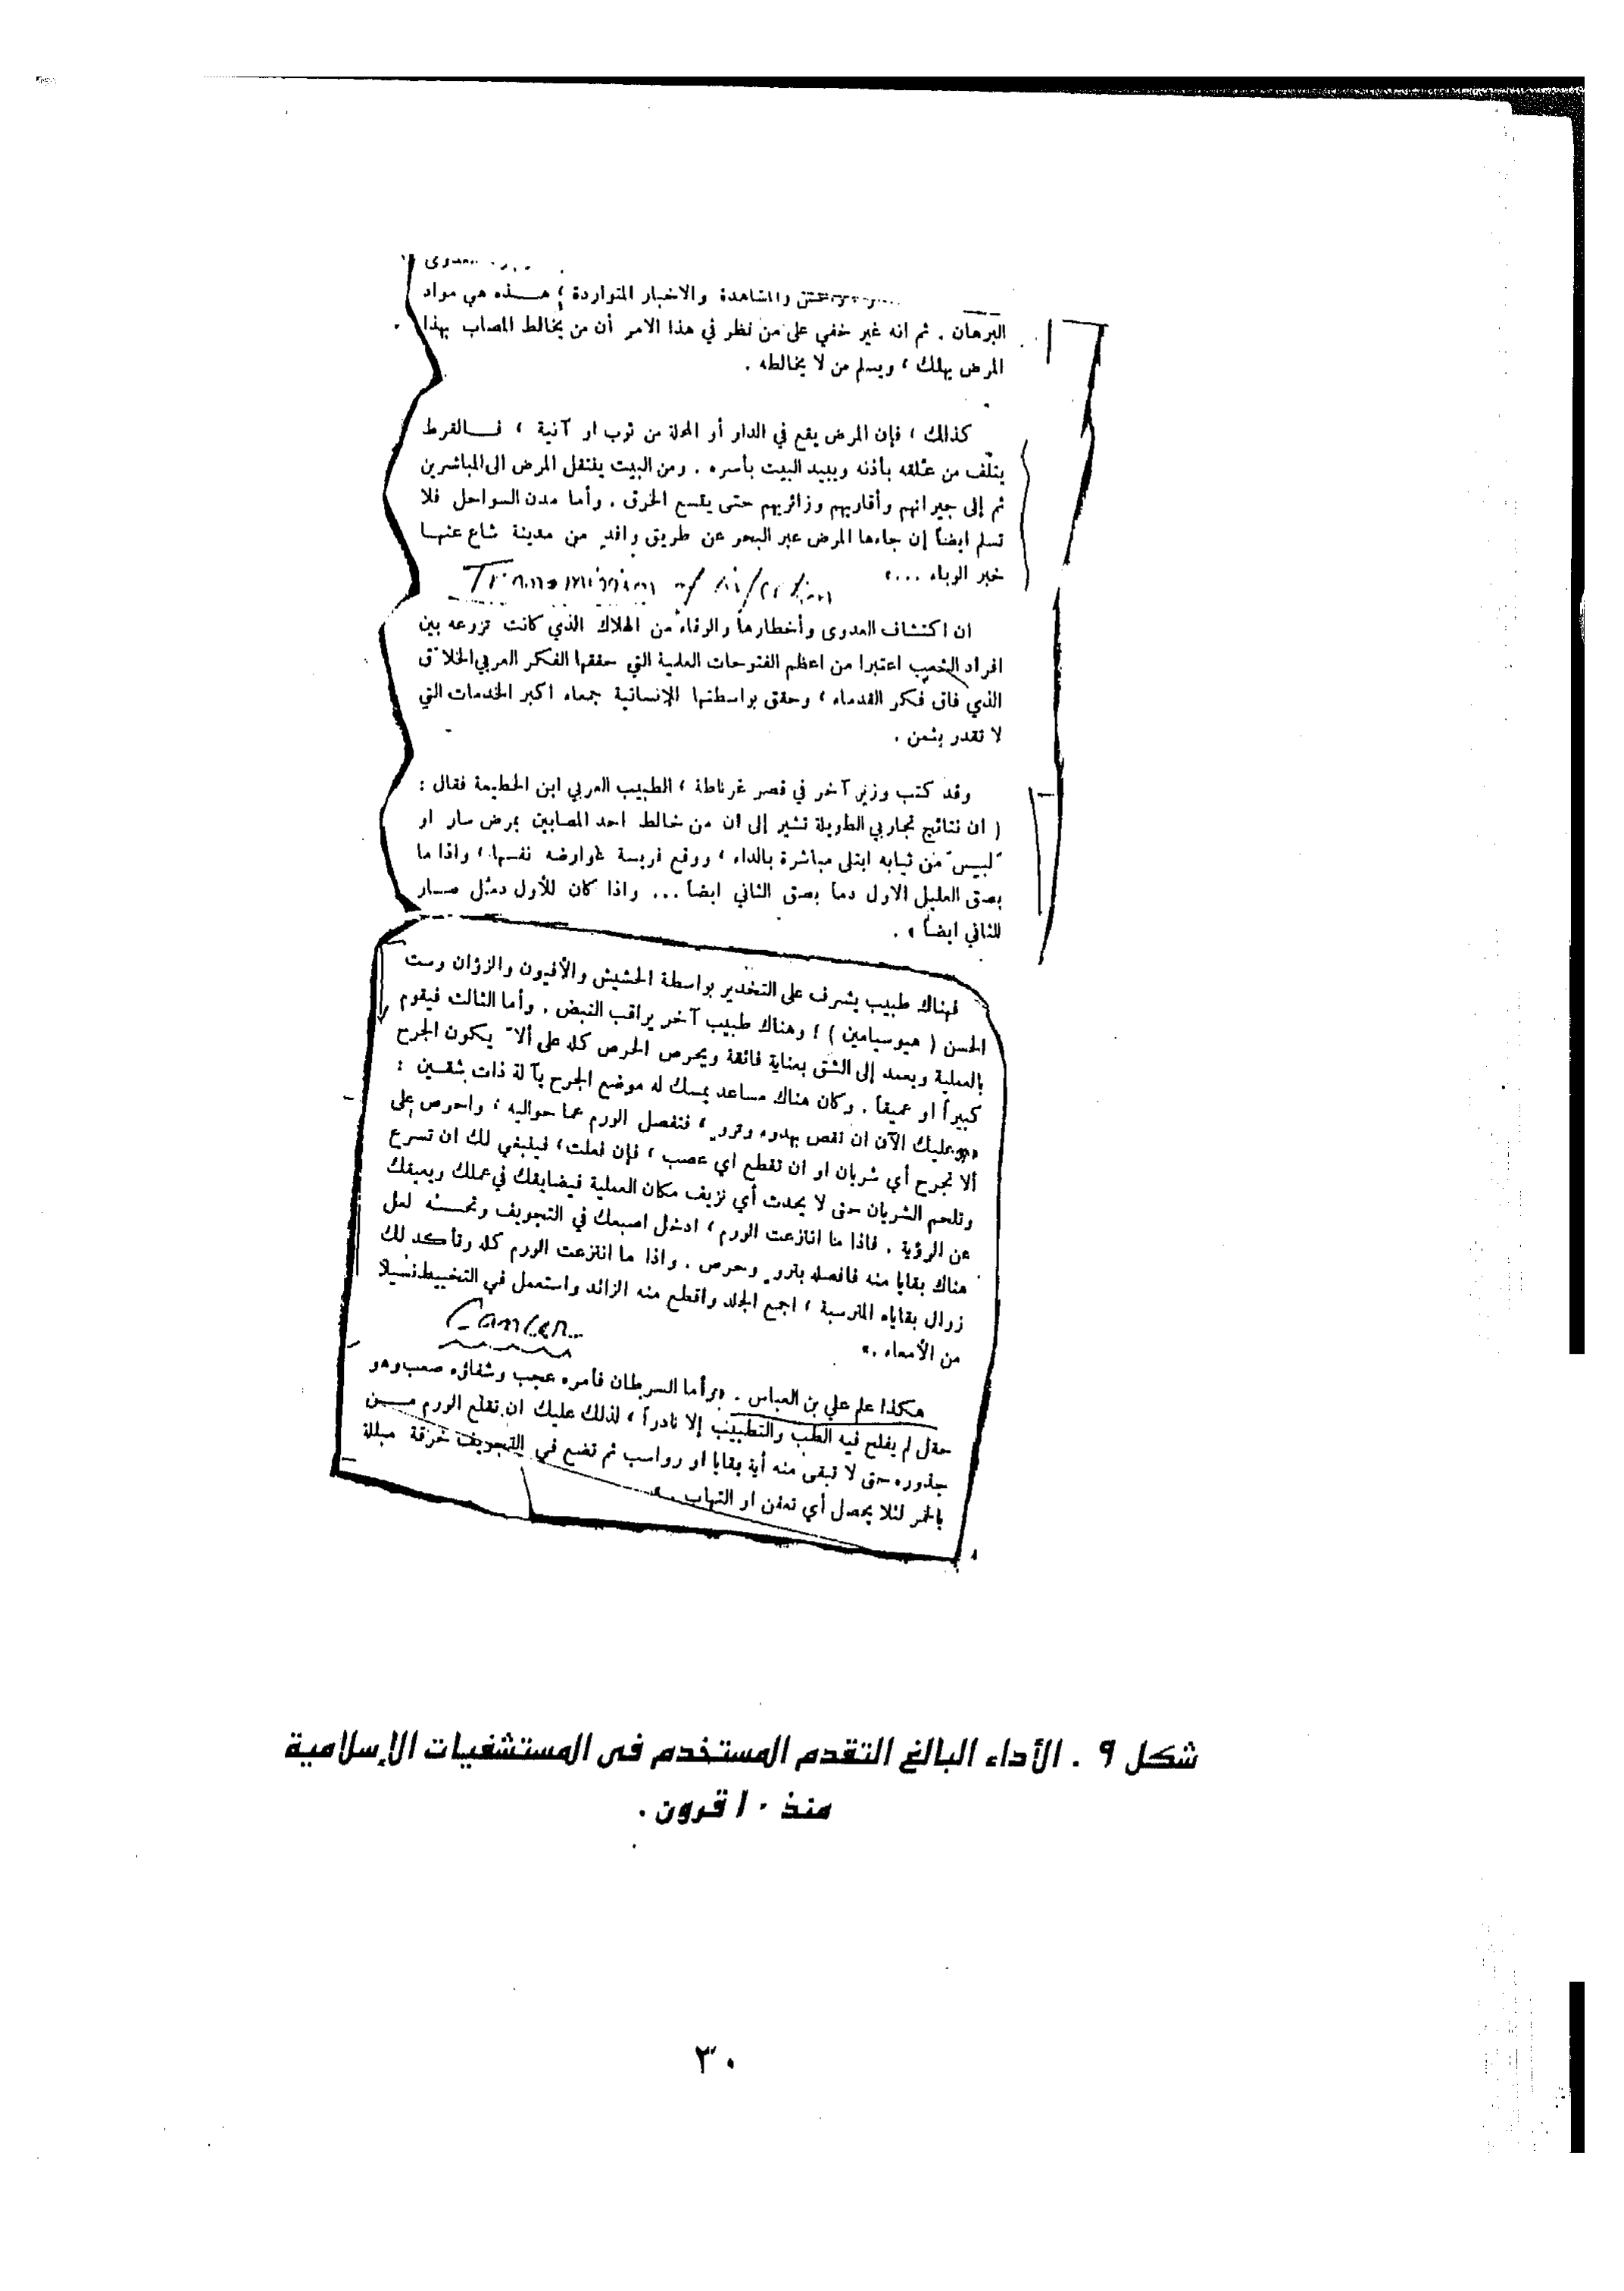 العدوى
والمشاهدة والاخبار المتواردة ؛ هـــذه هي مواد
البرهان . ثم انه غير خفي على من نظر في هذا الامر أن من يخالط المصاب بهذا
المرض يهلك ، ويسلم من لا يخالطه .
كذلك ، فإن المرض يقع في الدار أو المحلة من ثوب او آنية ، فـــالقرط
يتلف من علقه بأذنه ويبيد البيت بأسره . ومن البيت ينتقل المرض الى المباشرين
ثم إلى جيرانهم وأقاربهم وزائريهم حتى يتسع الخرق . وأما مدن السواحل فلا
تسلم ايضاً إن جاءها المرض عبر البحر عن طريق وافد من مدينة شاع عنهـا
خبر الوباء ... »
Transmission of infection
ان اكتشاف العدوى وأخطارها والوقاء من الهلاك الذي كانت تزرعه بين
افراد الشعب اعتبرا من اعظم الفتوحات العلمية التي حققها الفكر العربي الخلاق
الذي فاق فكر القدماء ، وحقق بواسطتها للإنسانية جمعاء اكبر الخدمات التي
لا تقدر بثمن .
وقد كتب وزير آخر في قصر غرناطة ، الطبيب العربي ابن الخطيمة فقال :
( ان نتائج تجاربي الطويلة تشير إلى ان من خالط احد المصابين بمرض سار او
لبس من ثيابه ابتلى مباشرة بالداء ، ووقع فريسة عوارضه نفسها ، واذا ما
بصق العليل الاول دماً بصق الثاني ايضاً ... واذا كان للأول دمّل صـــار
للثاني ايضاً » .
فهناك طبيب يشرف على التخدير بواسطة الحشيش والأفيون والزؤان وست
الحسن ( هيوسيامين ) ؛ وهناك طبيب آخر يراقب النبض . وأما الثالث فيقوم
بالعملية ويعمد إلى الشق بعناية فائقة ويحرص الحرص كله على ألا يكون الجرح
كبيراً او عميقاً . وكان هناك مساعد يمسك له موضع الجرح بآلة ذات شقـــين :
« وعليك الآن ان تقص بهدوء وتروٍ ، فتفصل الورم عما حواليه ، واحرص على
ألا تجرح أي شريان او ان تقطع اي عصب ، فإن فعلت ، فينبغي لك ان تسرع
وتلحم الشريان حتى لا يحدث أي نزيف مكان العملية فيضايقك في عملك ويعيقك
عن الرؤية . فاذا ما انتزعت الورم ، ادخل اصبعك في التجويف وتحســه لعل
هناك بقايا منه فافصله بتروٍ وحرص . واذا ما انتزعت الورم كله وتأكد لك
زوال بقاياه المترسبة ، اجمع الجلد واقطع منه الزائد واستعمل في التخييط نسيلا
من الأمعاء . »
Cancer
هكذا علم علي بن العباس . « وأما السرطان فأمره عجب وشفاؤه صعب وهو
حقل لم يفلح فيه الطب والتطبيب إلا نادراً ، لذلك عليك ان تقلع الورم مـــن
جذوره حتى لا تبقى منه أية بقايا او رواسب ثم تضع في التجويف خرقة مبللة
بالخمر لئلا يحصل أي تعفن او التهاب . »
شكل ٩ . الأداء البالغ التقدم المستخدم فى المستشفيات الإسلامية
منذ ١٠ قرون .
٣٠